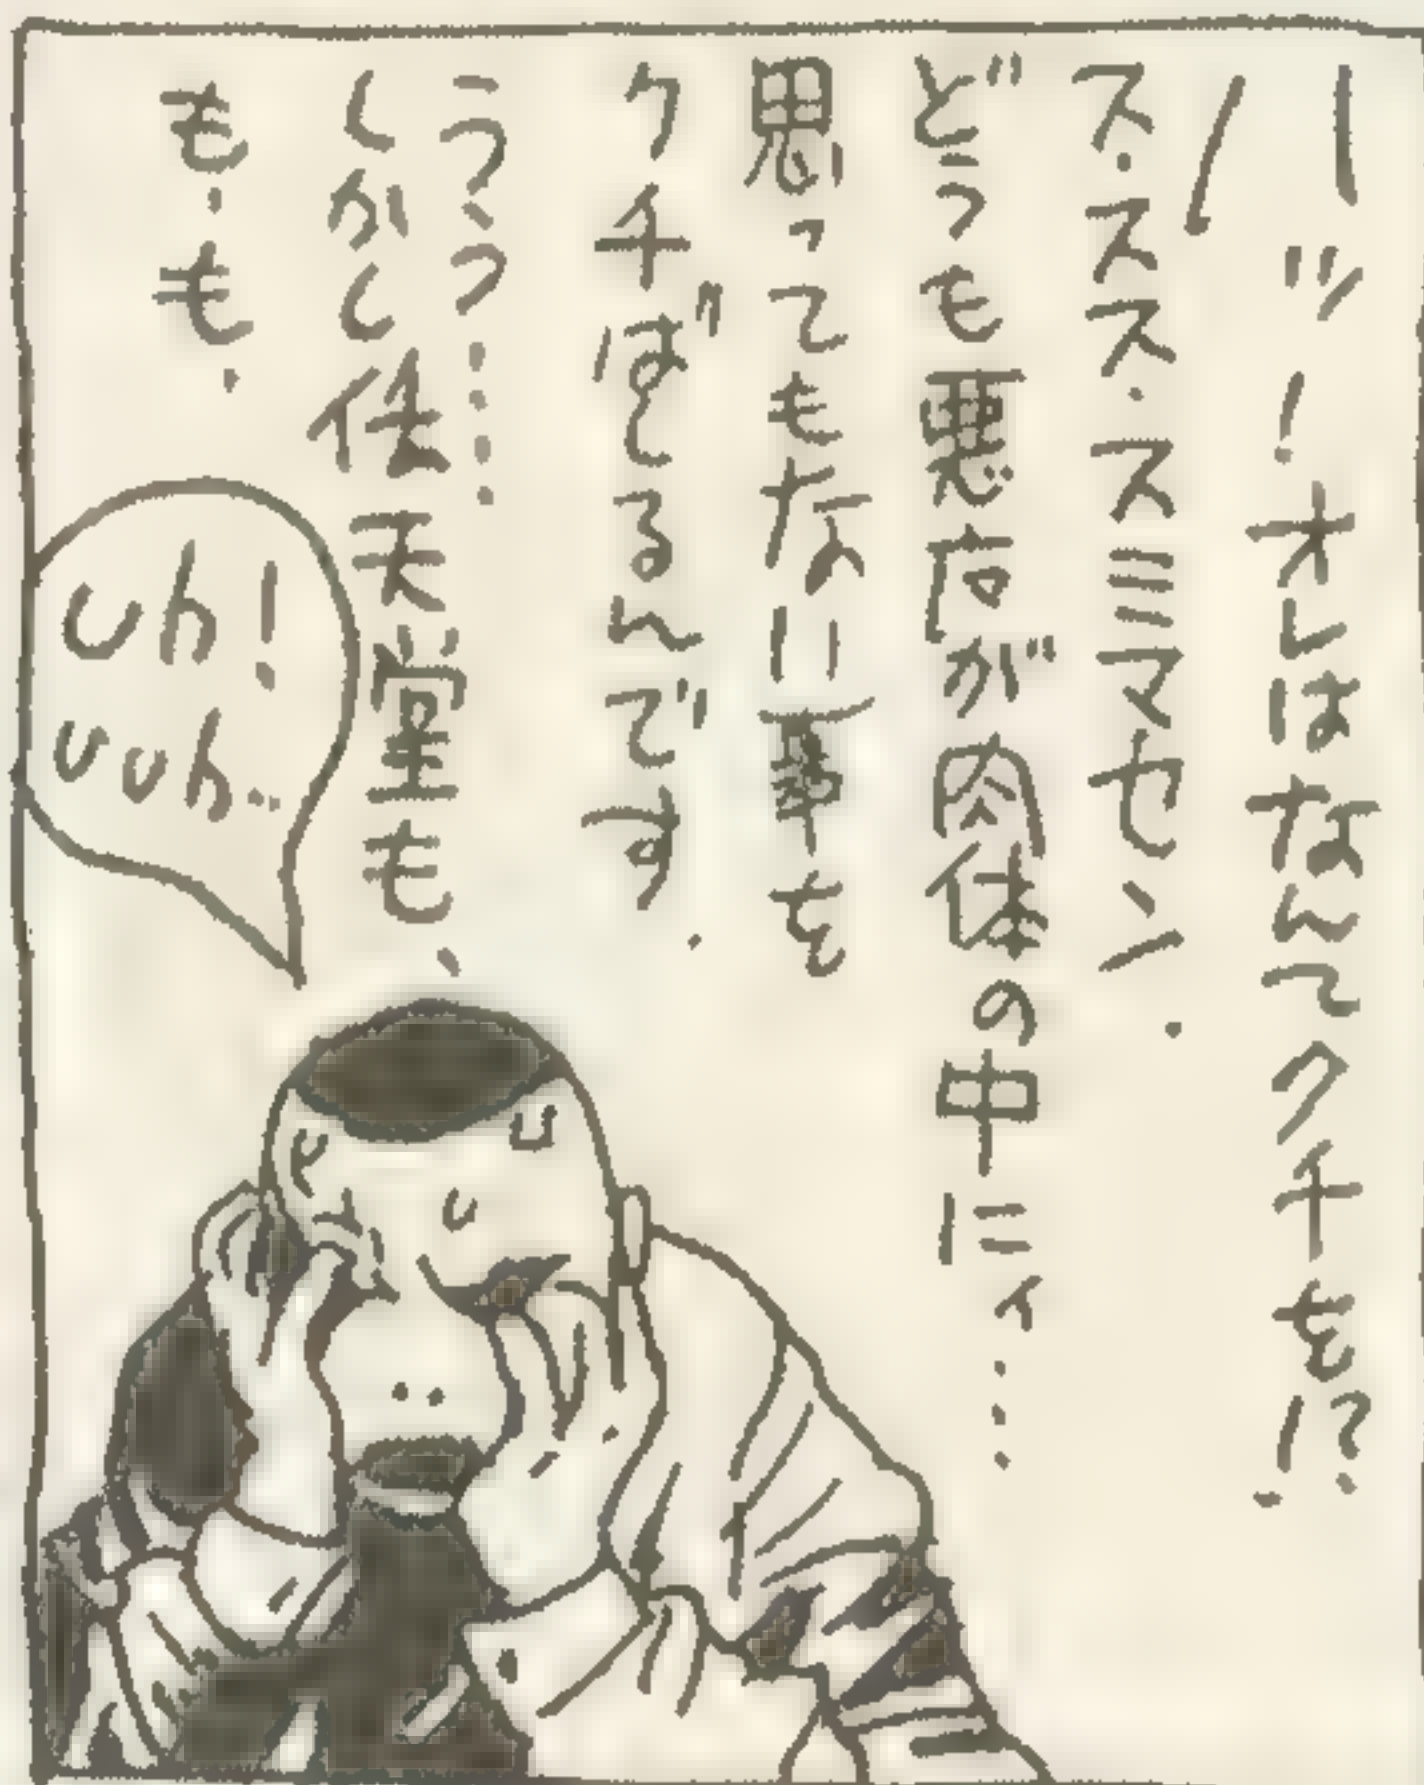 ハッ!オレはなんてクチを!?
ス.スス.スミマセン.
どうも悪店が肉体の中にィ...
思ってもない事を
クチばしるんです.
う、う、う.....
しかし任天堂も、
も.も.
uh!
uuh..